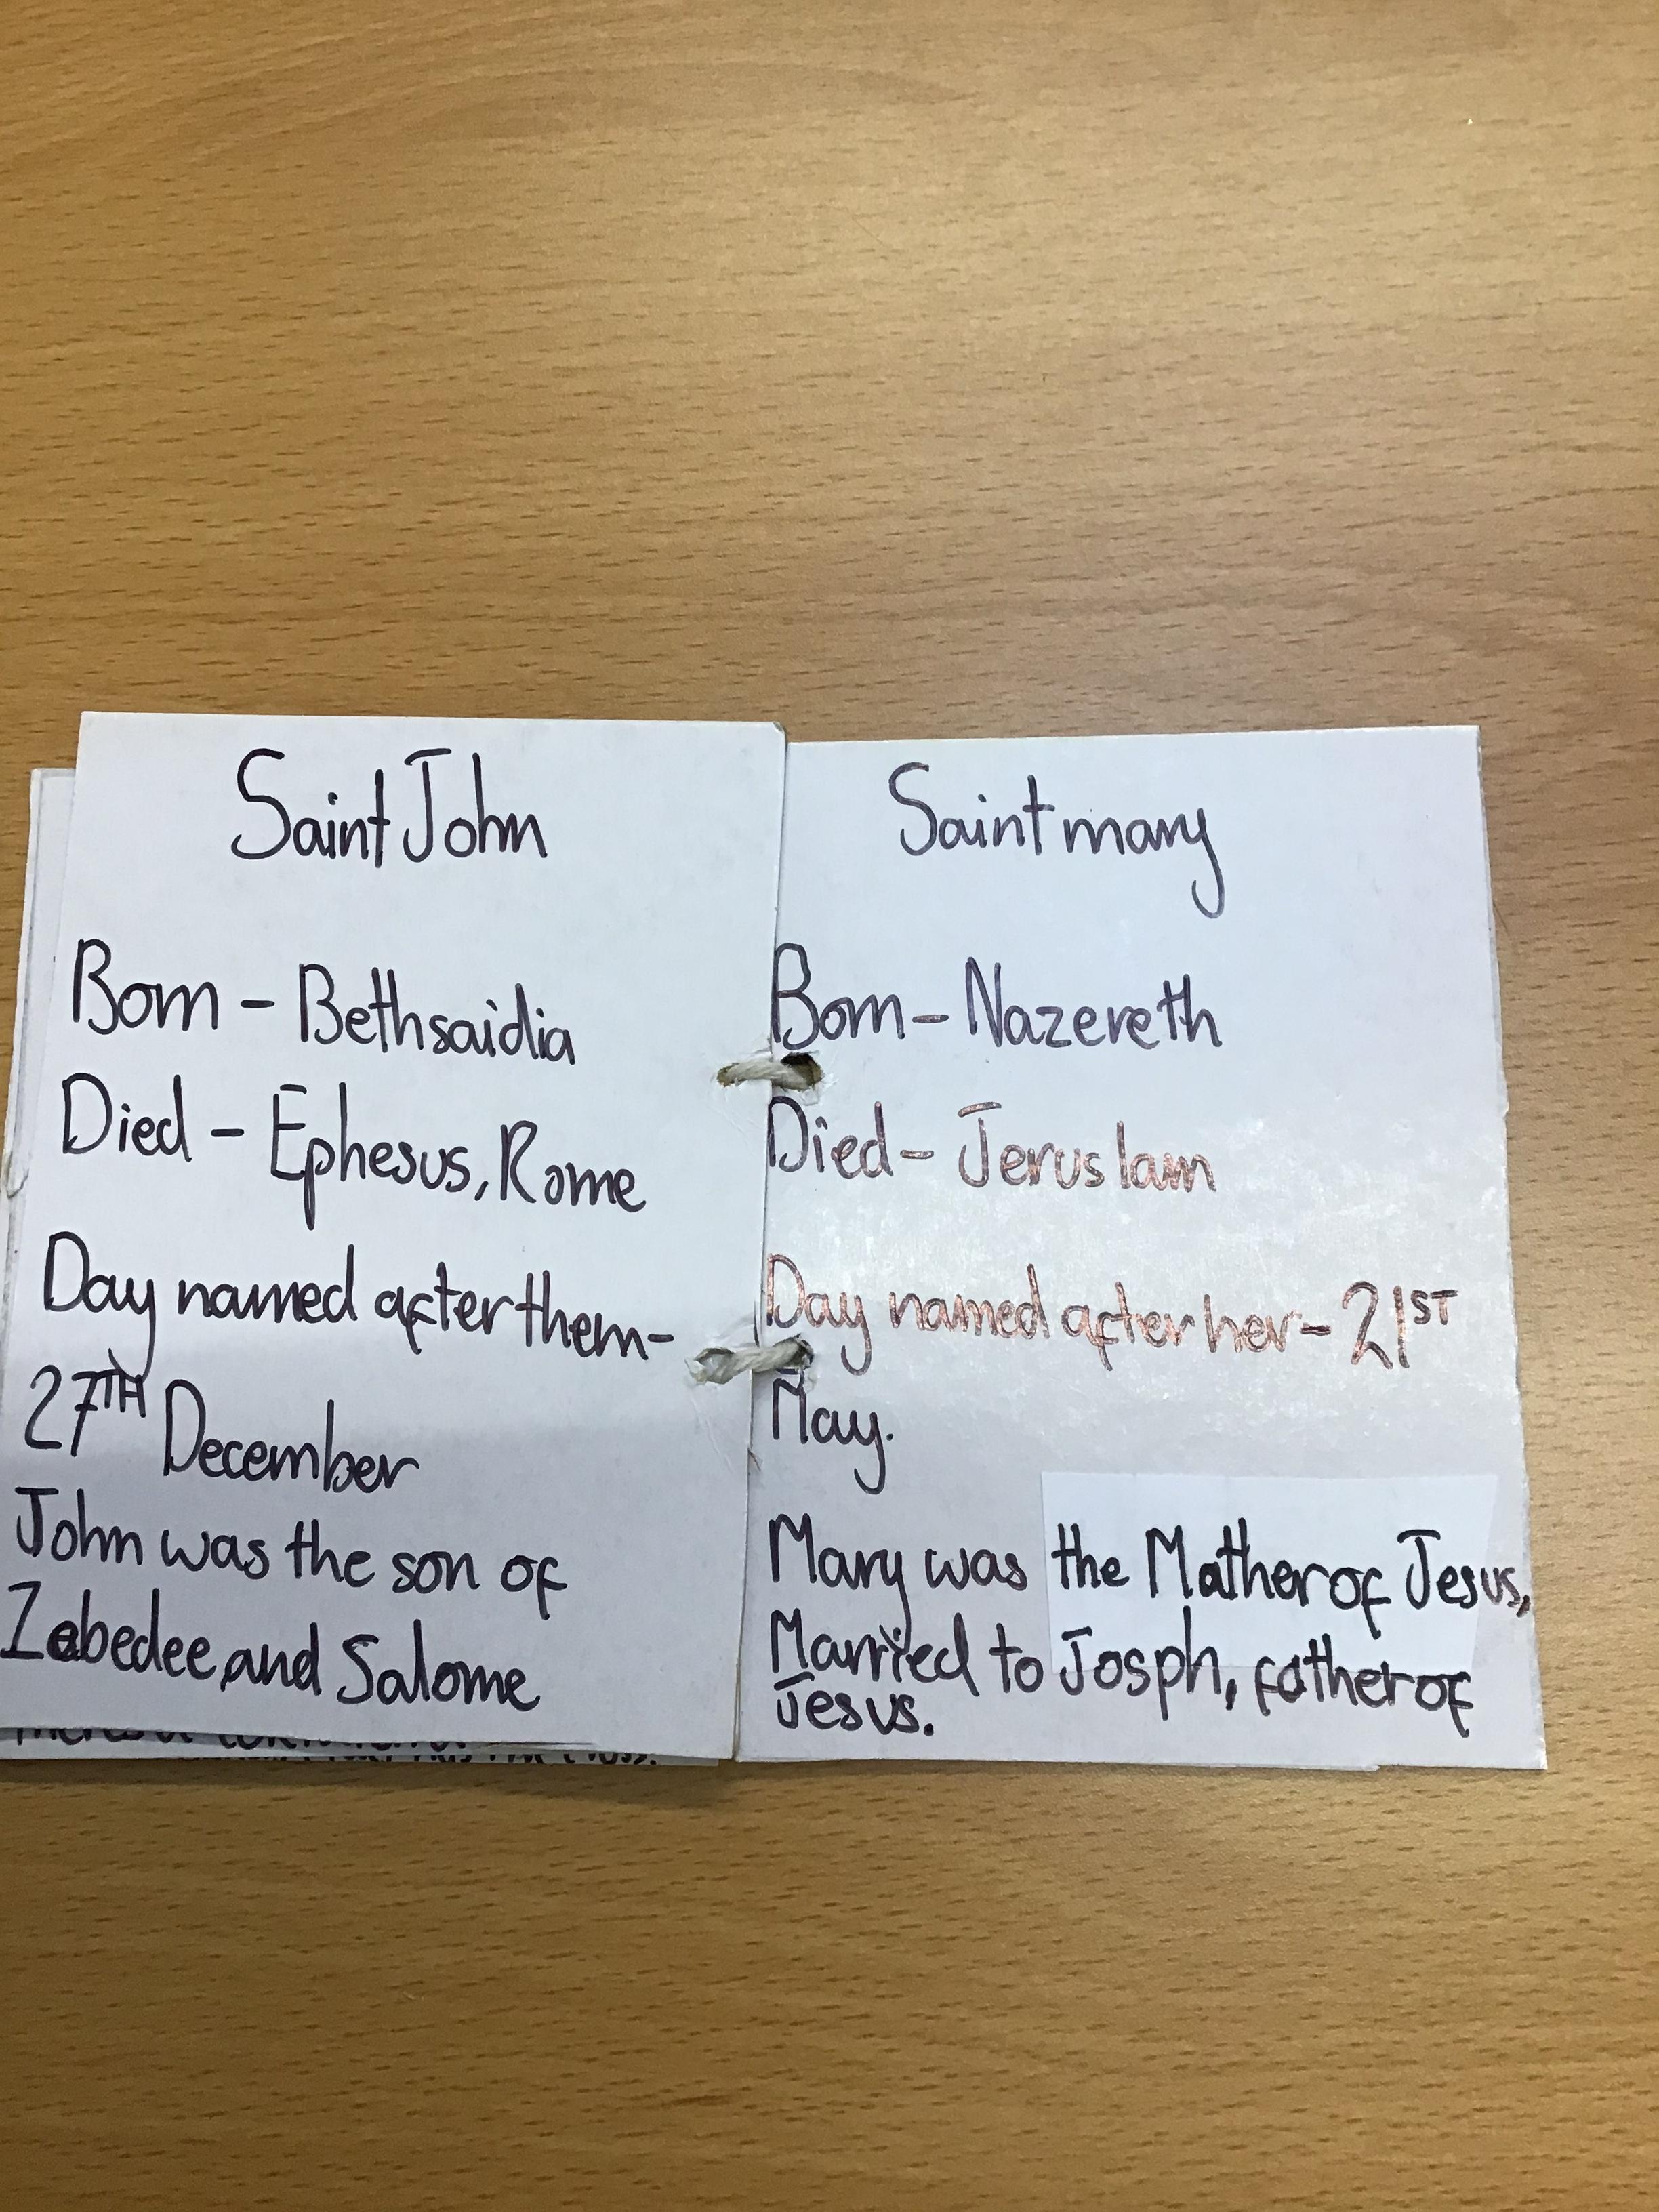 Saint John
Born - Bethsaidia
Died - Ephesus, Rome
Day named after them-
27TH December
John was the son of
Zebedee, and Salome
Saint mary
Born - Nazereth
Died - Jeruslam
Day named after her - 21ST
May.
Mary was the Mather of Jesus,
Married to Josph, father of
Jesus.